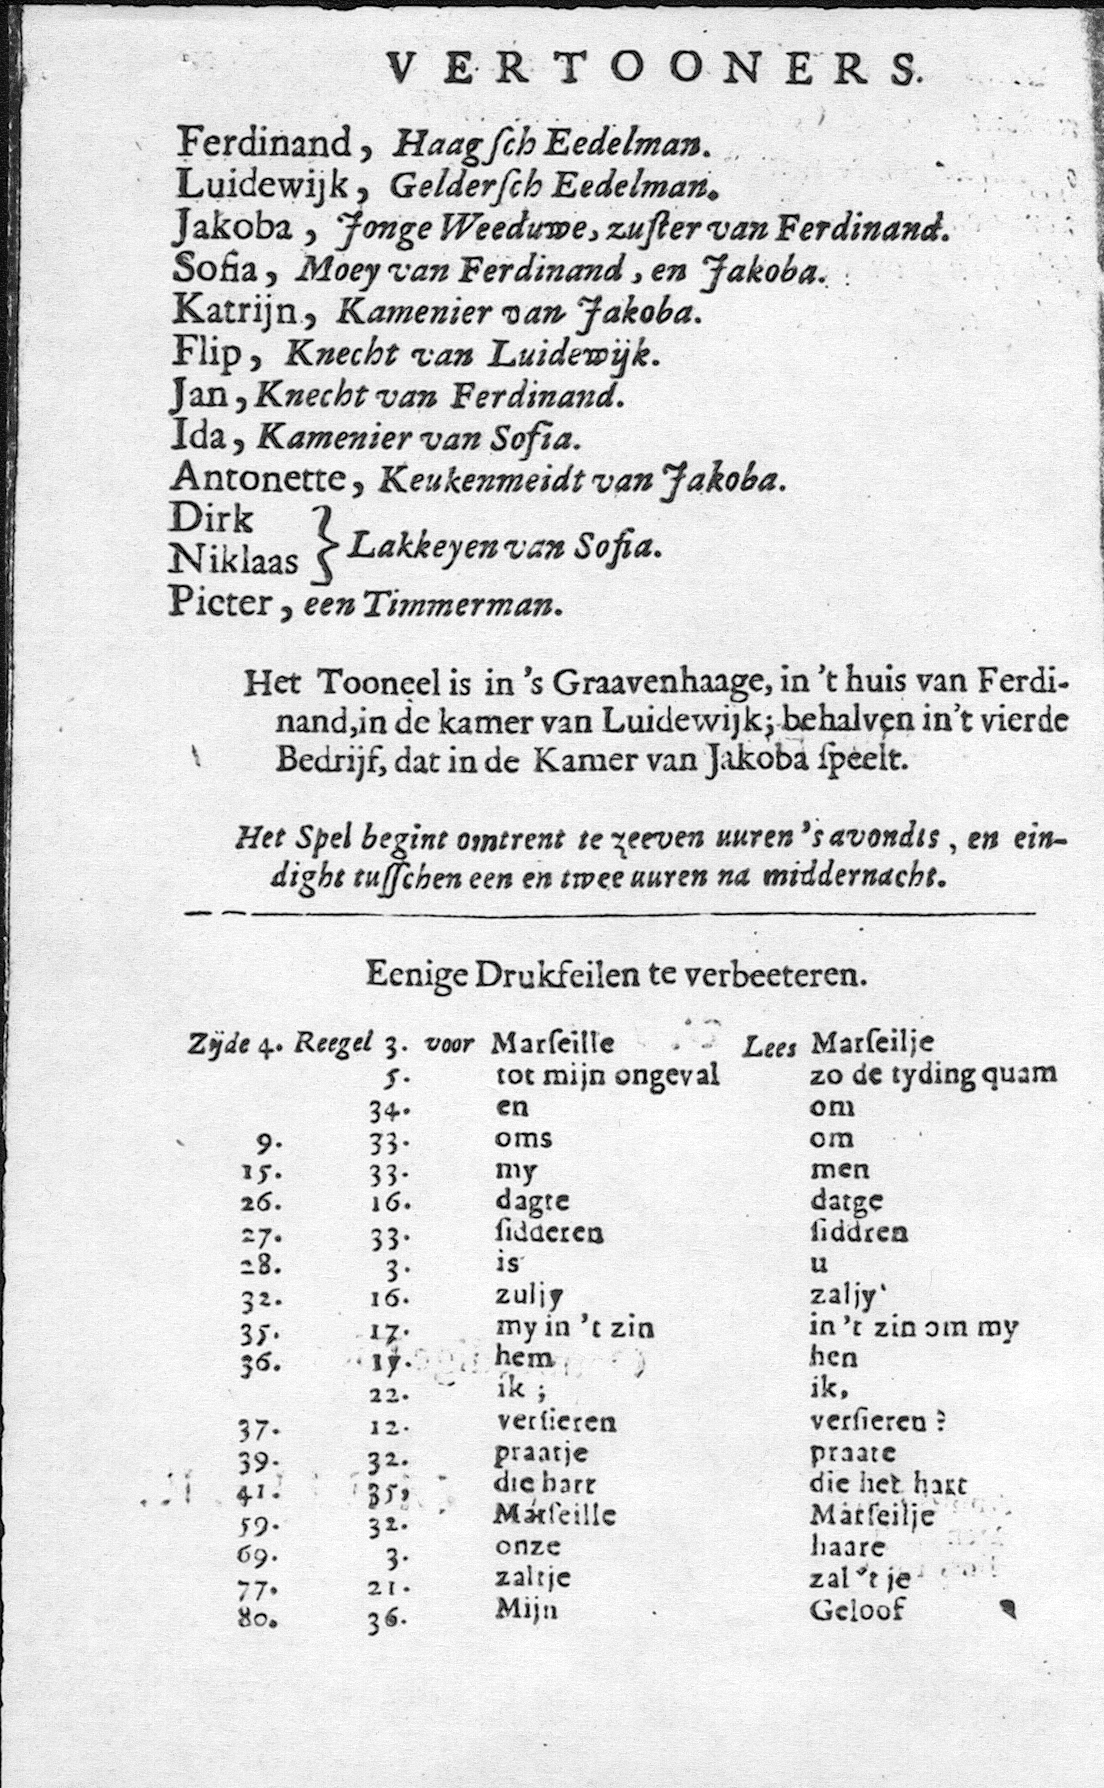 VERTOONERS.
Ferdinand, Haagſch Eedelman.
Luidewijk, Gelderſch Eedelman.
Jakoba, Jonge Weeduwe, zuſter van Ferdinand.
Sofia, Moey van Ferdinand, en Jakoba.
Katrijn, Kamenier van Jakoba.
Flip, Knecht van Luidewijk.
Jan, Knecht van Ferdinand.
Ida, Kamenier van Sofia.
Antonette, Keukenmeidt van Jakoba.
Dirk
Niklaas } Lakkeyen van Sofia.
Pieter, een Timmerman.
Het Tooneel is in 's Graavenhaage, in 't huis van Ferdi-
nand, in de kamer van Luidewijk; behalven in 't vierde
Bedrijf, dat in de Kamer van Jakoba ſpeelt.
Het Spel begint omtrent te zeeven uuren 's avondts, en ein-
dight tuſſchen een en twee uuren na middernacht.
Eenige Drukfeilen te verbeeteren.
Zijde 4. Reegel 3. voor Marſeille Lees Marſeilje
5. tot mijn ongeval zo de tyding quam
34. en om
9. 33. oms om
15. 33. my men
26. 16. dagte datge
27. 33. ſidderen ſiddren
28. 3. is u
32. 16. zuljy zaljy
35. 17. my in 't zin in 't zin om my
36. 17. hem hen
22. ik ; ik,
37. 12. verſieren verſieren ?
39. 32. praatje praate
41. 35, die hart die het hart
59. 32. Marſeille Marſeilje
69. 3. onze haare
77. 21. zaltje zal 't je
80. 36. Mijn Geloof